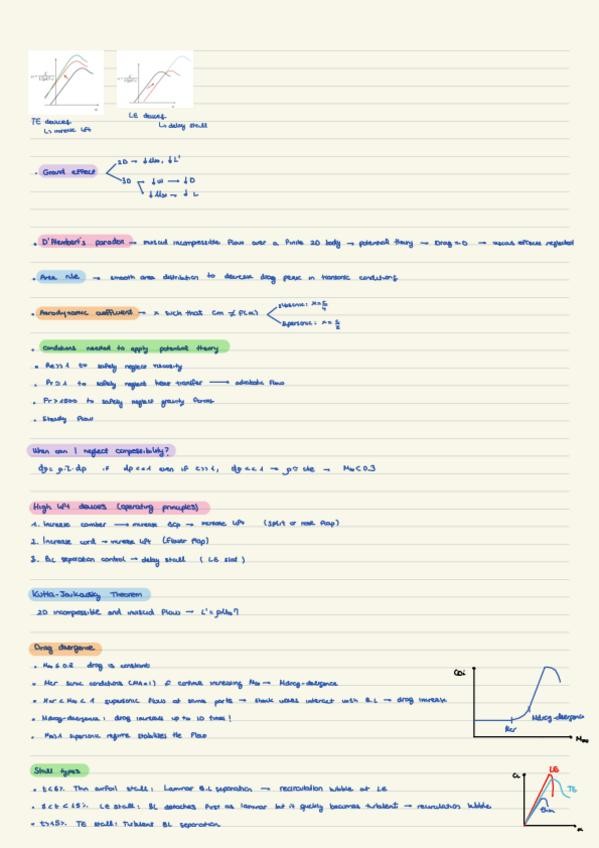 TE devices
↳ increase lift
LE devices
↳ delay stall
• Ground effect
2D → ↓α∞, ↓L'
3D → ↓w → ↓D
↓α∞ → ↓L
• D'Alembert's paradox → inviscid incompressible flow over a finite 2D body → potential theory → Drag = 0 → viscous effects neglected
• Area rule → smooth area distribution to decrease drag peak in transonic conditions
• Aerodynamic coefficient → x such that Cm ≠ f(α)
subsonic: x = c/4
supersonic: x = c/2
• Conditions needed to apply potential theory
• Re>>1 to safely neglect viscosity
• Pr ≥ 1 to safely neglect heat transfer → adiabatic flow
• Fr > 1500 to safely neglect gravity forces
• Steady flow
When can I neglect compressibility?
dρ = ρ.τ.dp if dp <<1 even if τ>>1, dρ <<1 → ρ ≈ cte → M∞ < 0.3
High lift devices (operating principles)
1. Increase camber → increase ΔCp → increase lift (split or rear flap)
2. Increase cord → increase lift (Flower flap)
3. B.L separation control → delay stall (LE slat)
Kutta-Joukowsky Theorem
2D incompressible and inviscid flow → L' = ρU∞Γ
Drag divergence
• M∞ ≤ 0.8 drag is constant
• Mcr sonic conditions (M=1) if continue increasing M∞ → Mdrag-divergence
• Mcr < M∞ < 1 supersonic flow at some parts → shock waves interact with B.L → drag increase
• Mdrag-divergence: drag increases up to 10 times!
• M∞>1 supersonic regime stabilizes the flow
CDi
Mcr
Mdrag-divergence
M∞
Stall types
• t<6% Thin airfoil stall: Laminar B.L separation → recirculation bubble at LE
LE stall: BL detaches first as laminar but it quickly becomes turbulent → recirculation bubble
• t>15% TE stall: Turbulent BL separation
CL
LE
TE
thin
α